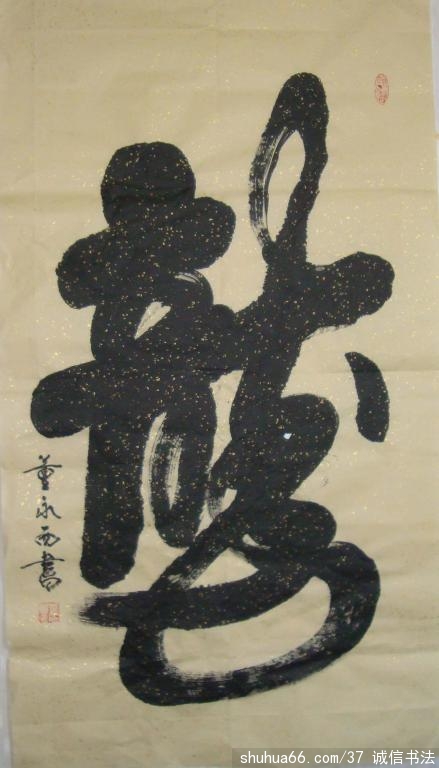 龍
董永西書
shuhua66.com/37 诚信书法